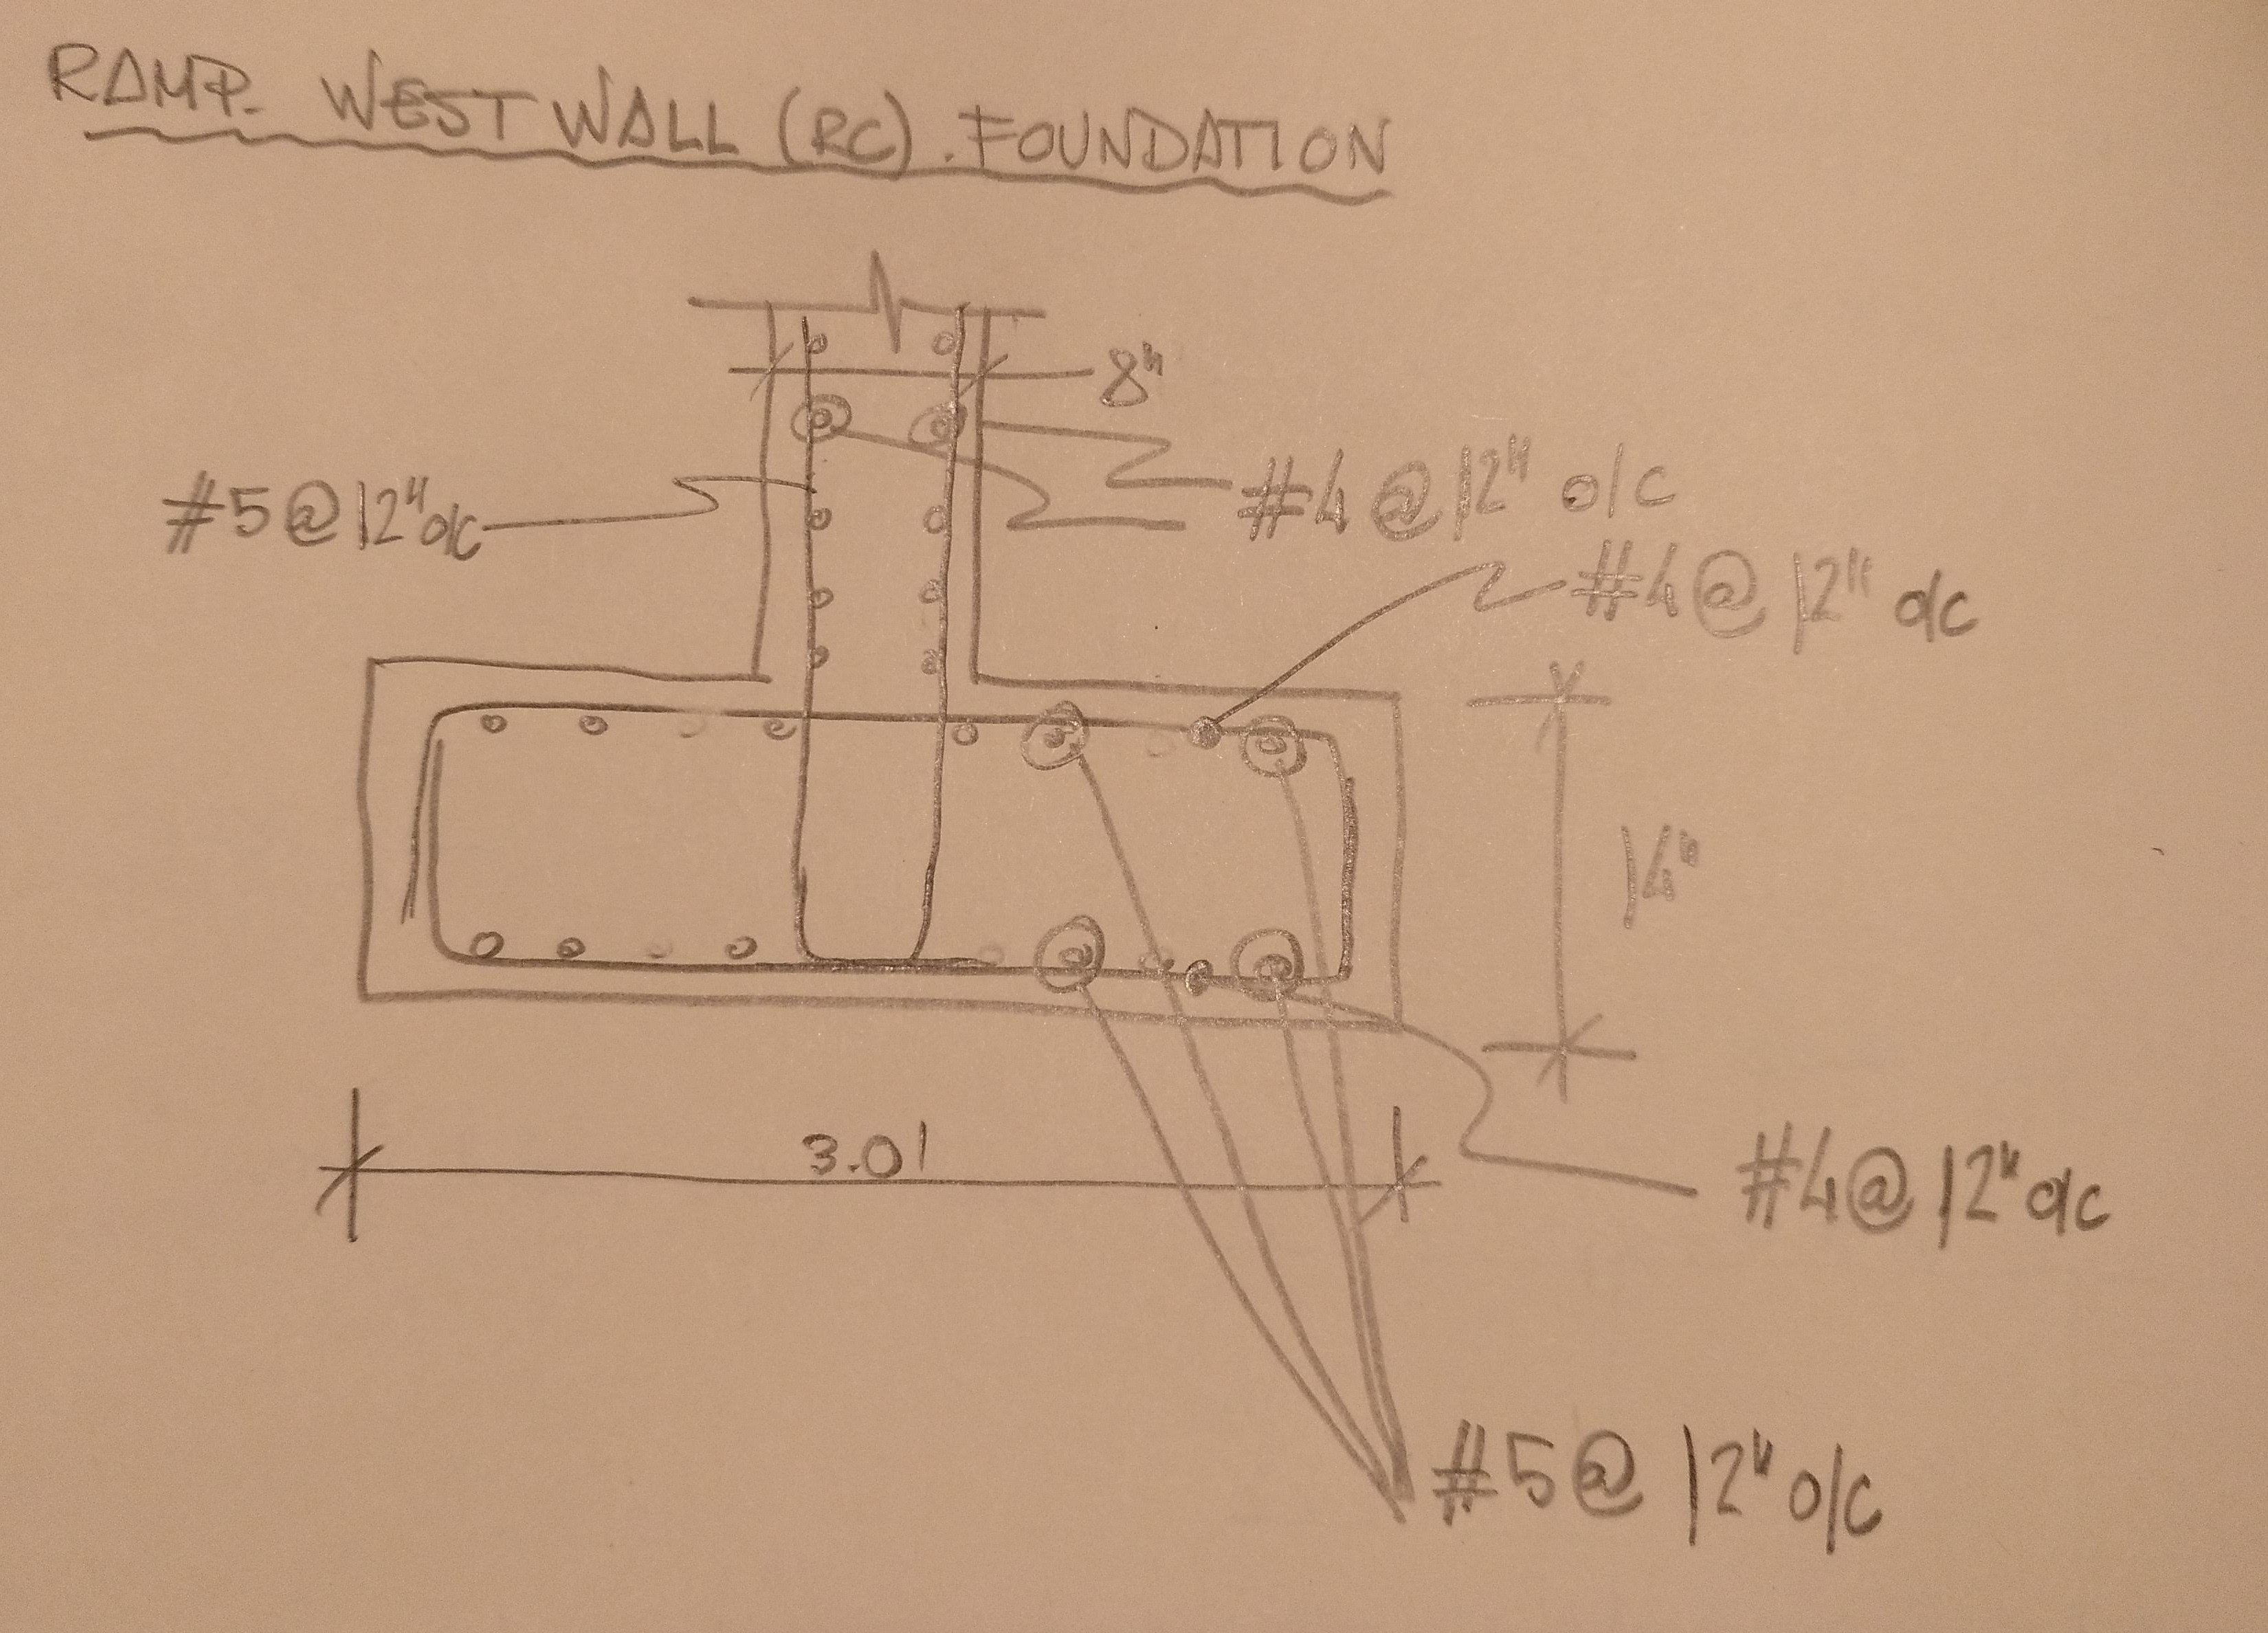 RAMP. WEST WALL (RC). FOUNDATION
8"
#5@12"o/c
#4@12" o/c
#4@12" o/c
3.0'
#4@12" o/c
#5@12" o/c